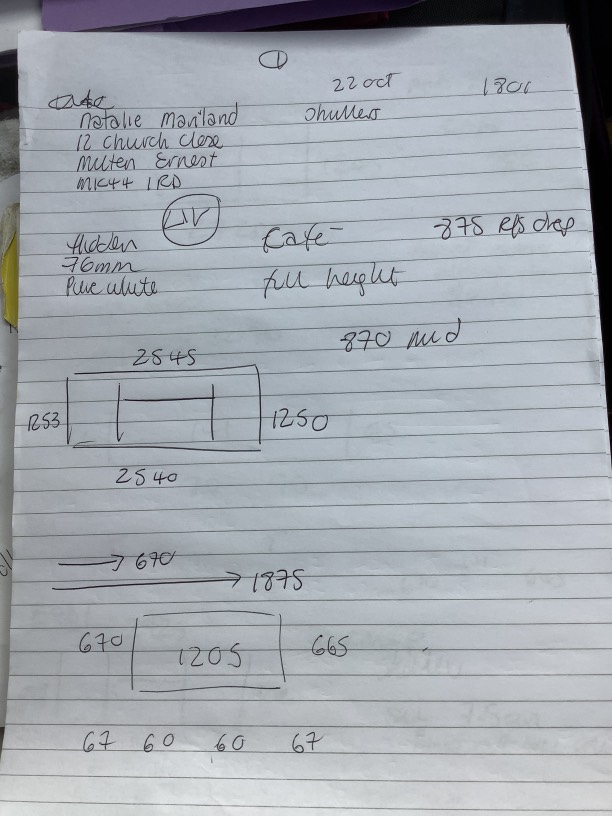 ①
22 oct
Natalie Maniland Shutters
12 church close
Milten Ernest
MK44 1RD
UV
Hidden Cafe 875 drop
76mm
Pure white full height
870 mid
2545
1253 1250
2540
670
1875
670 1205 665
67 60 60 67